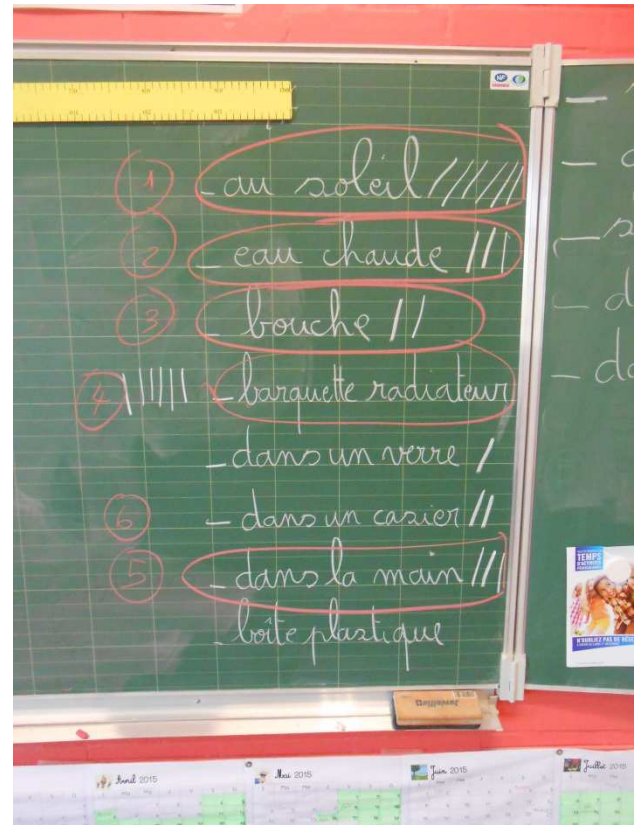 NF
1 - au soleil ///////
2 - eau chaude ///
3 - bouche //
4 |||||| - barquette radiateur
- dans un verre /
6 - dans un casier //
5 - dans la main ///
- boîte plastique
TEMPS
N'OUBLIEZ PAS DE
Avril 2015
Mai 2015
Juin 2015
Juillet 2015